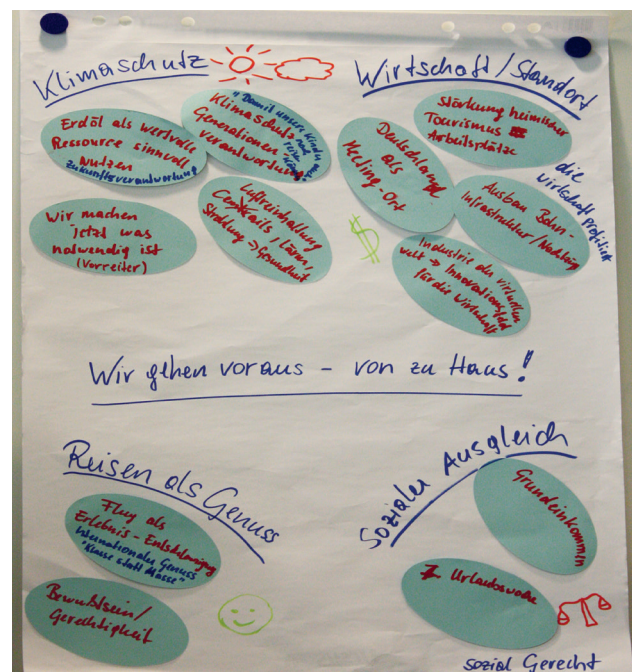 Klimaschutz
Erdöl als wertvolle
Ressource sinnvoll
nutzen
Zukunftsverantwortung
"Damit unsere Kinder auch
noch reisen können"
Klimaschutz
Generationen
verantwortung
Wir machen
jetzt was
notwendig ist
(Vorreiter)
Luftreinhaltung
Contrails, Lärm,
Strahlung → Gesundheit
Wirtschaft/Standort
Stärkung heimischer
Tourismus
Arbeitsplätze
Deutschland
als
Meeting-Ort
Ausbau Bahn-
infrastruktur/
die
Wirtschaft profitiert
$
Industrie der virtuellen
Welt → Innovations
für die Wirtschaft
Wir gehen voraus - von zu Haus!
Reisen als Genuss
Flug als
Erlebnis - Entschleunigung
Internationaler Genuss
"Klasse statt Masse"
Bewußtsein/
Gerechtigkeit
Sozialer Ausgleich
Grundeinkommen
Urlaubswoche
sozial Gerecht